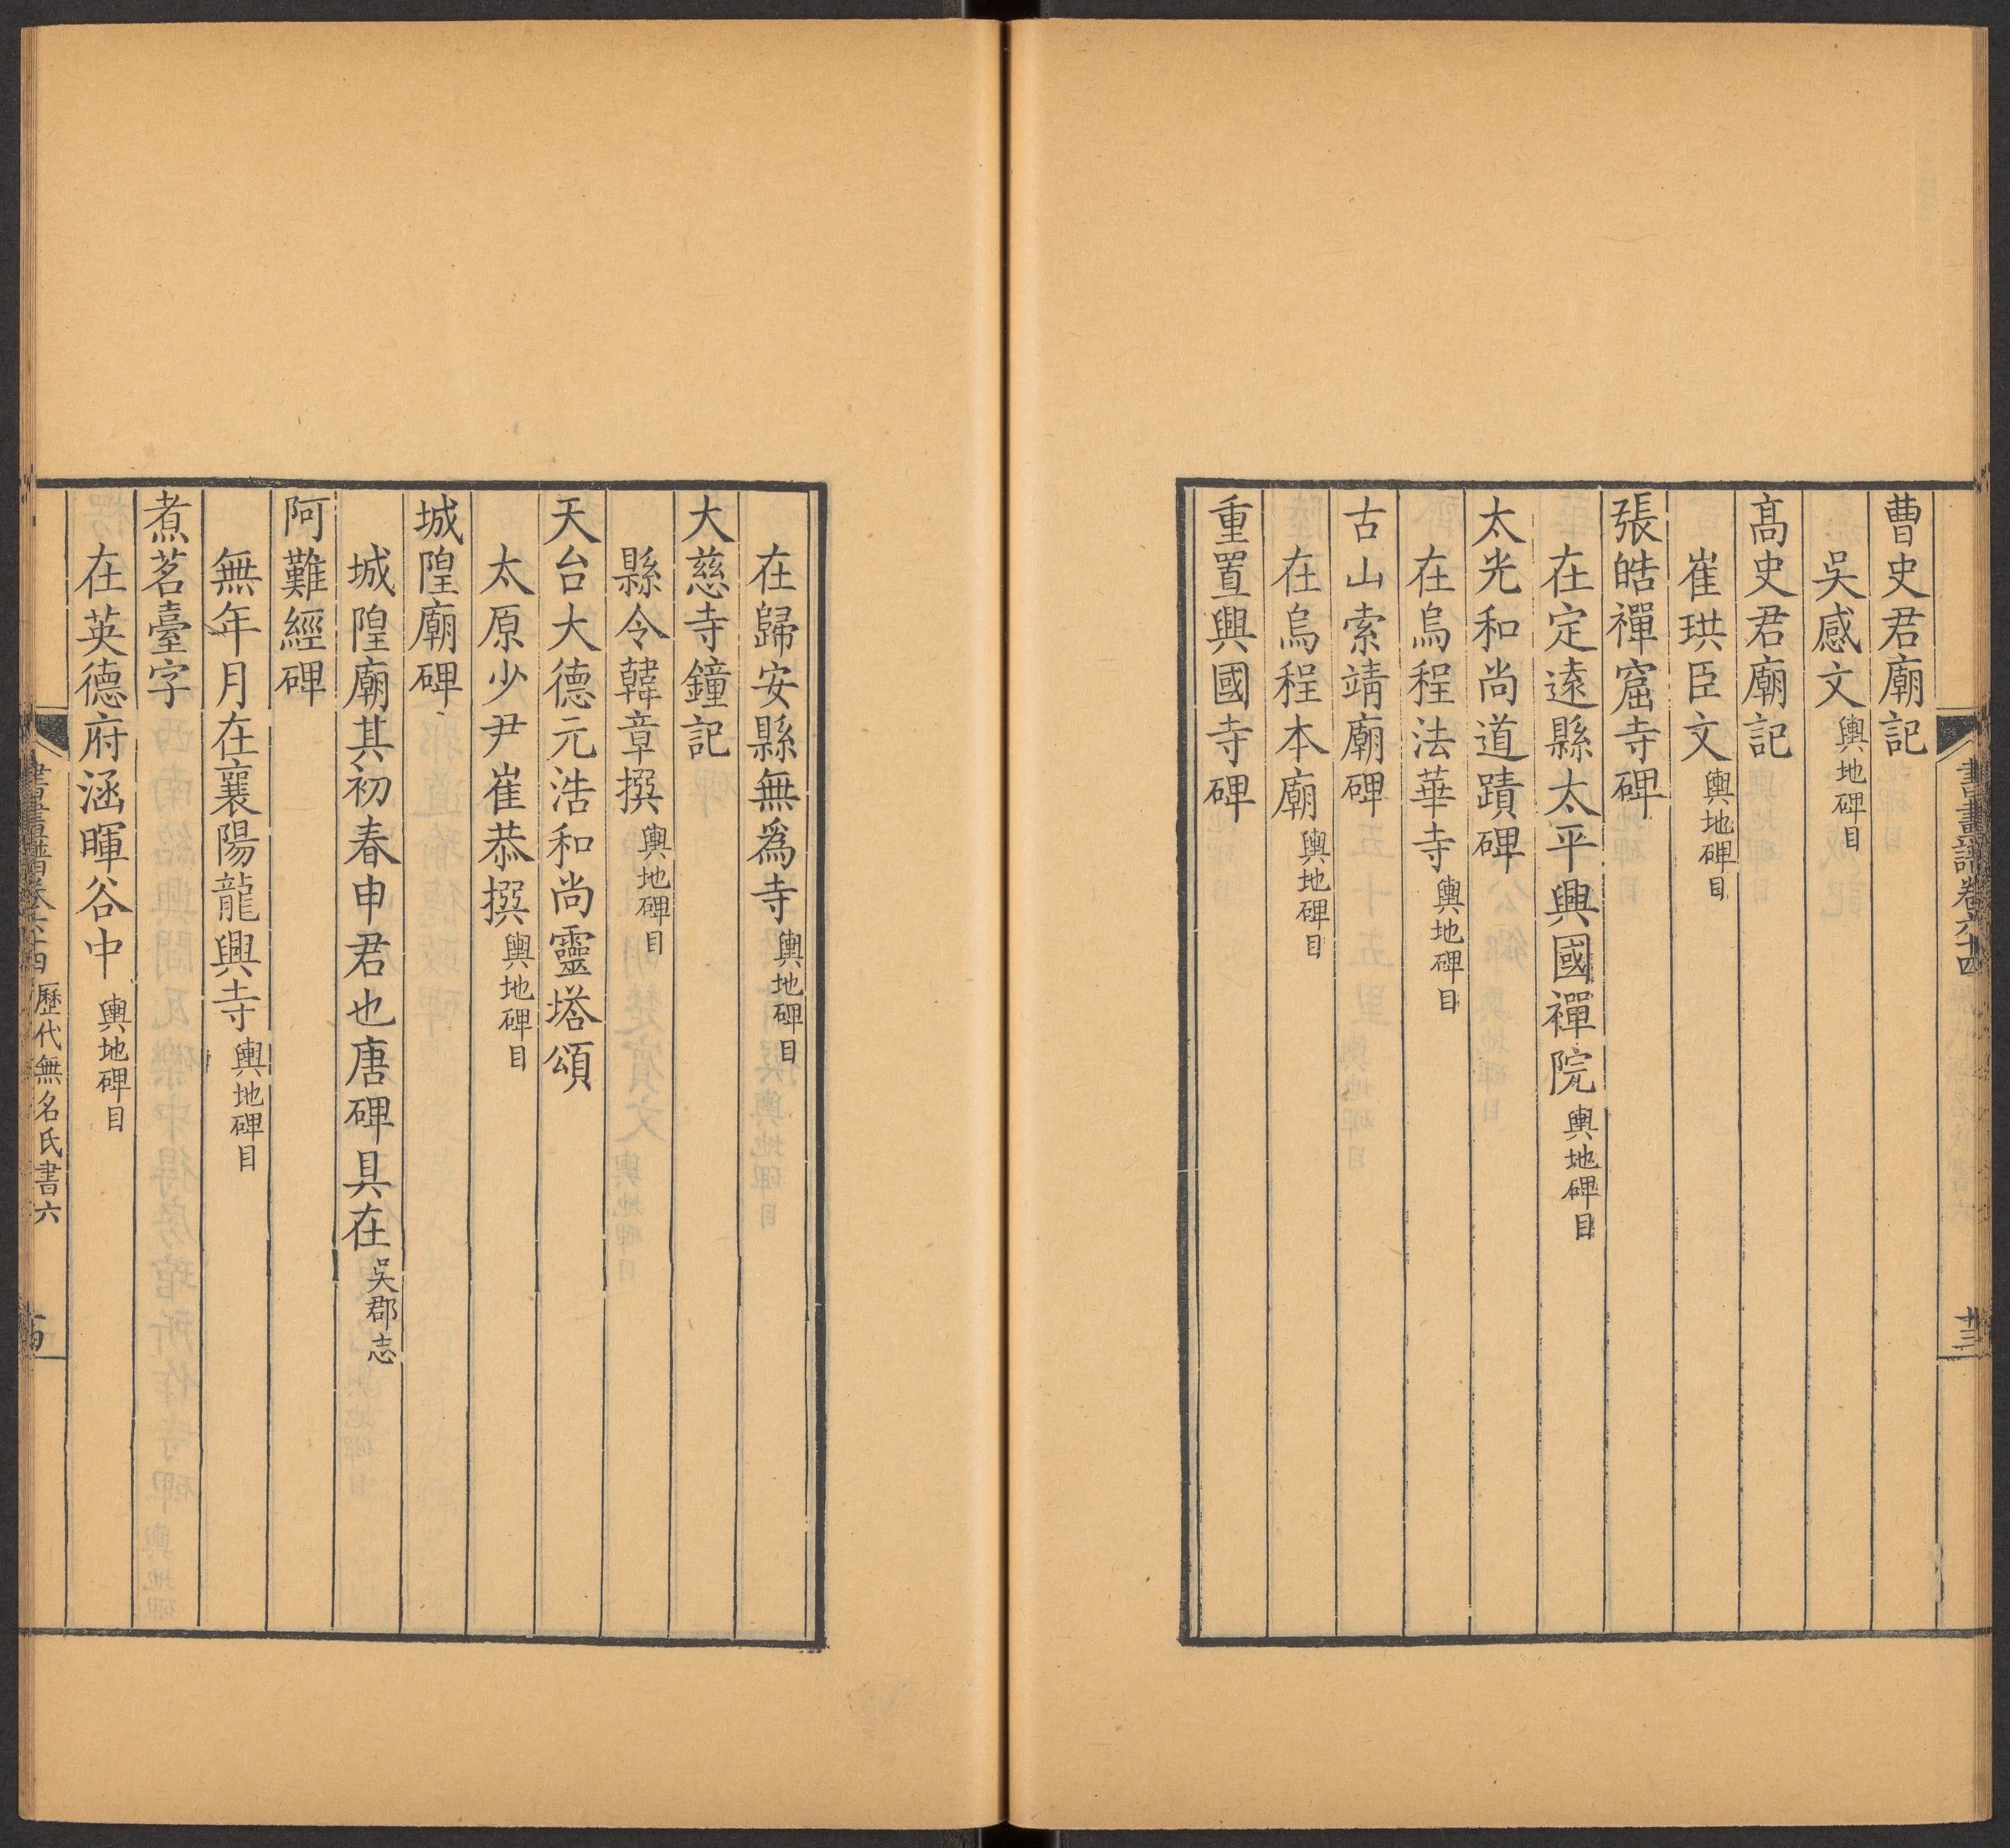 書畫譜卷六十四
十三
曹史君廟記
吳感文輿地碑目
髙史君廟記
崔珙臣文輿地碑目
張皓禪窟寺碑
在定遠縣太平興國禪院輿地碑目
太光和尚道蹟碑
在烏程法華寺輿地碑目
古山索靖廟碑
在烏程本廟輿地碑目
重置興國寺碑
在歸安縣無爲寺輿地碑目
大慈寺鐘記
縣令韓章撰輿地碑目
天台大德元浩和尚靈塔頌
太原少尹崔恭撰輿地碑目
城隍廟碑
城隍廟其初春申君也唐碑具在吳郡志
阿難經碑
無年月在襄陽龍興寺輿地碑目
煮茗臺字
在英德府涵暉谷中輿地碑目
書畫譜卷六十四 歷代無名氏書六